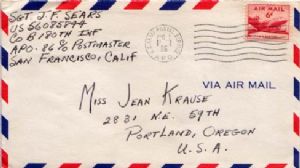 SGT. J. F. SEARS
US 56085844
CO B 180TH INF
APO. 86 % POSTMASTER
SAN FRANCISCO, CALIF
AIR MAIL
6¢
VIA AIR MAIL
MISS JEAN KRAUSE
2831 N.E. 59TH
PORTLAND, OREGON
U. S. A.